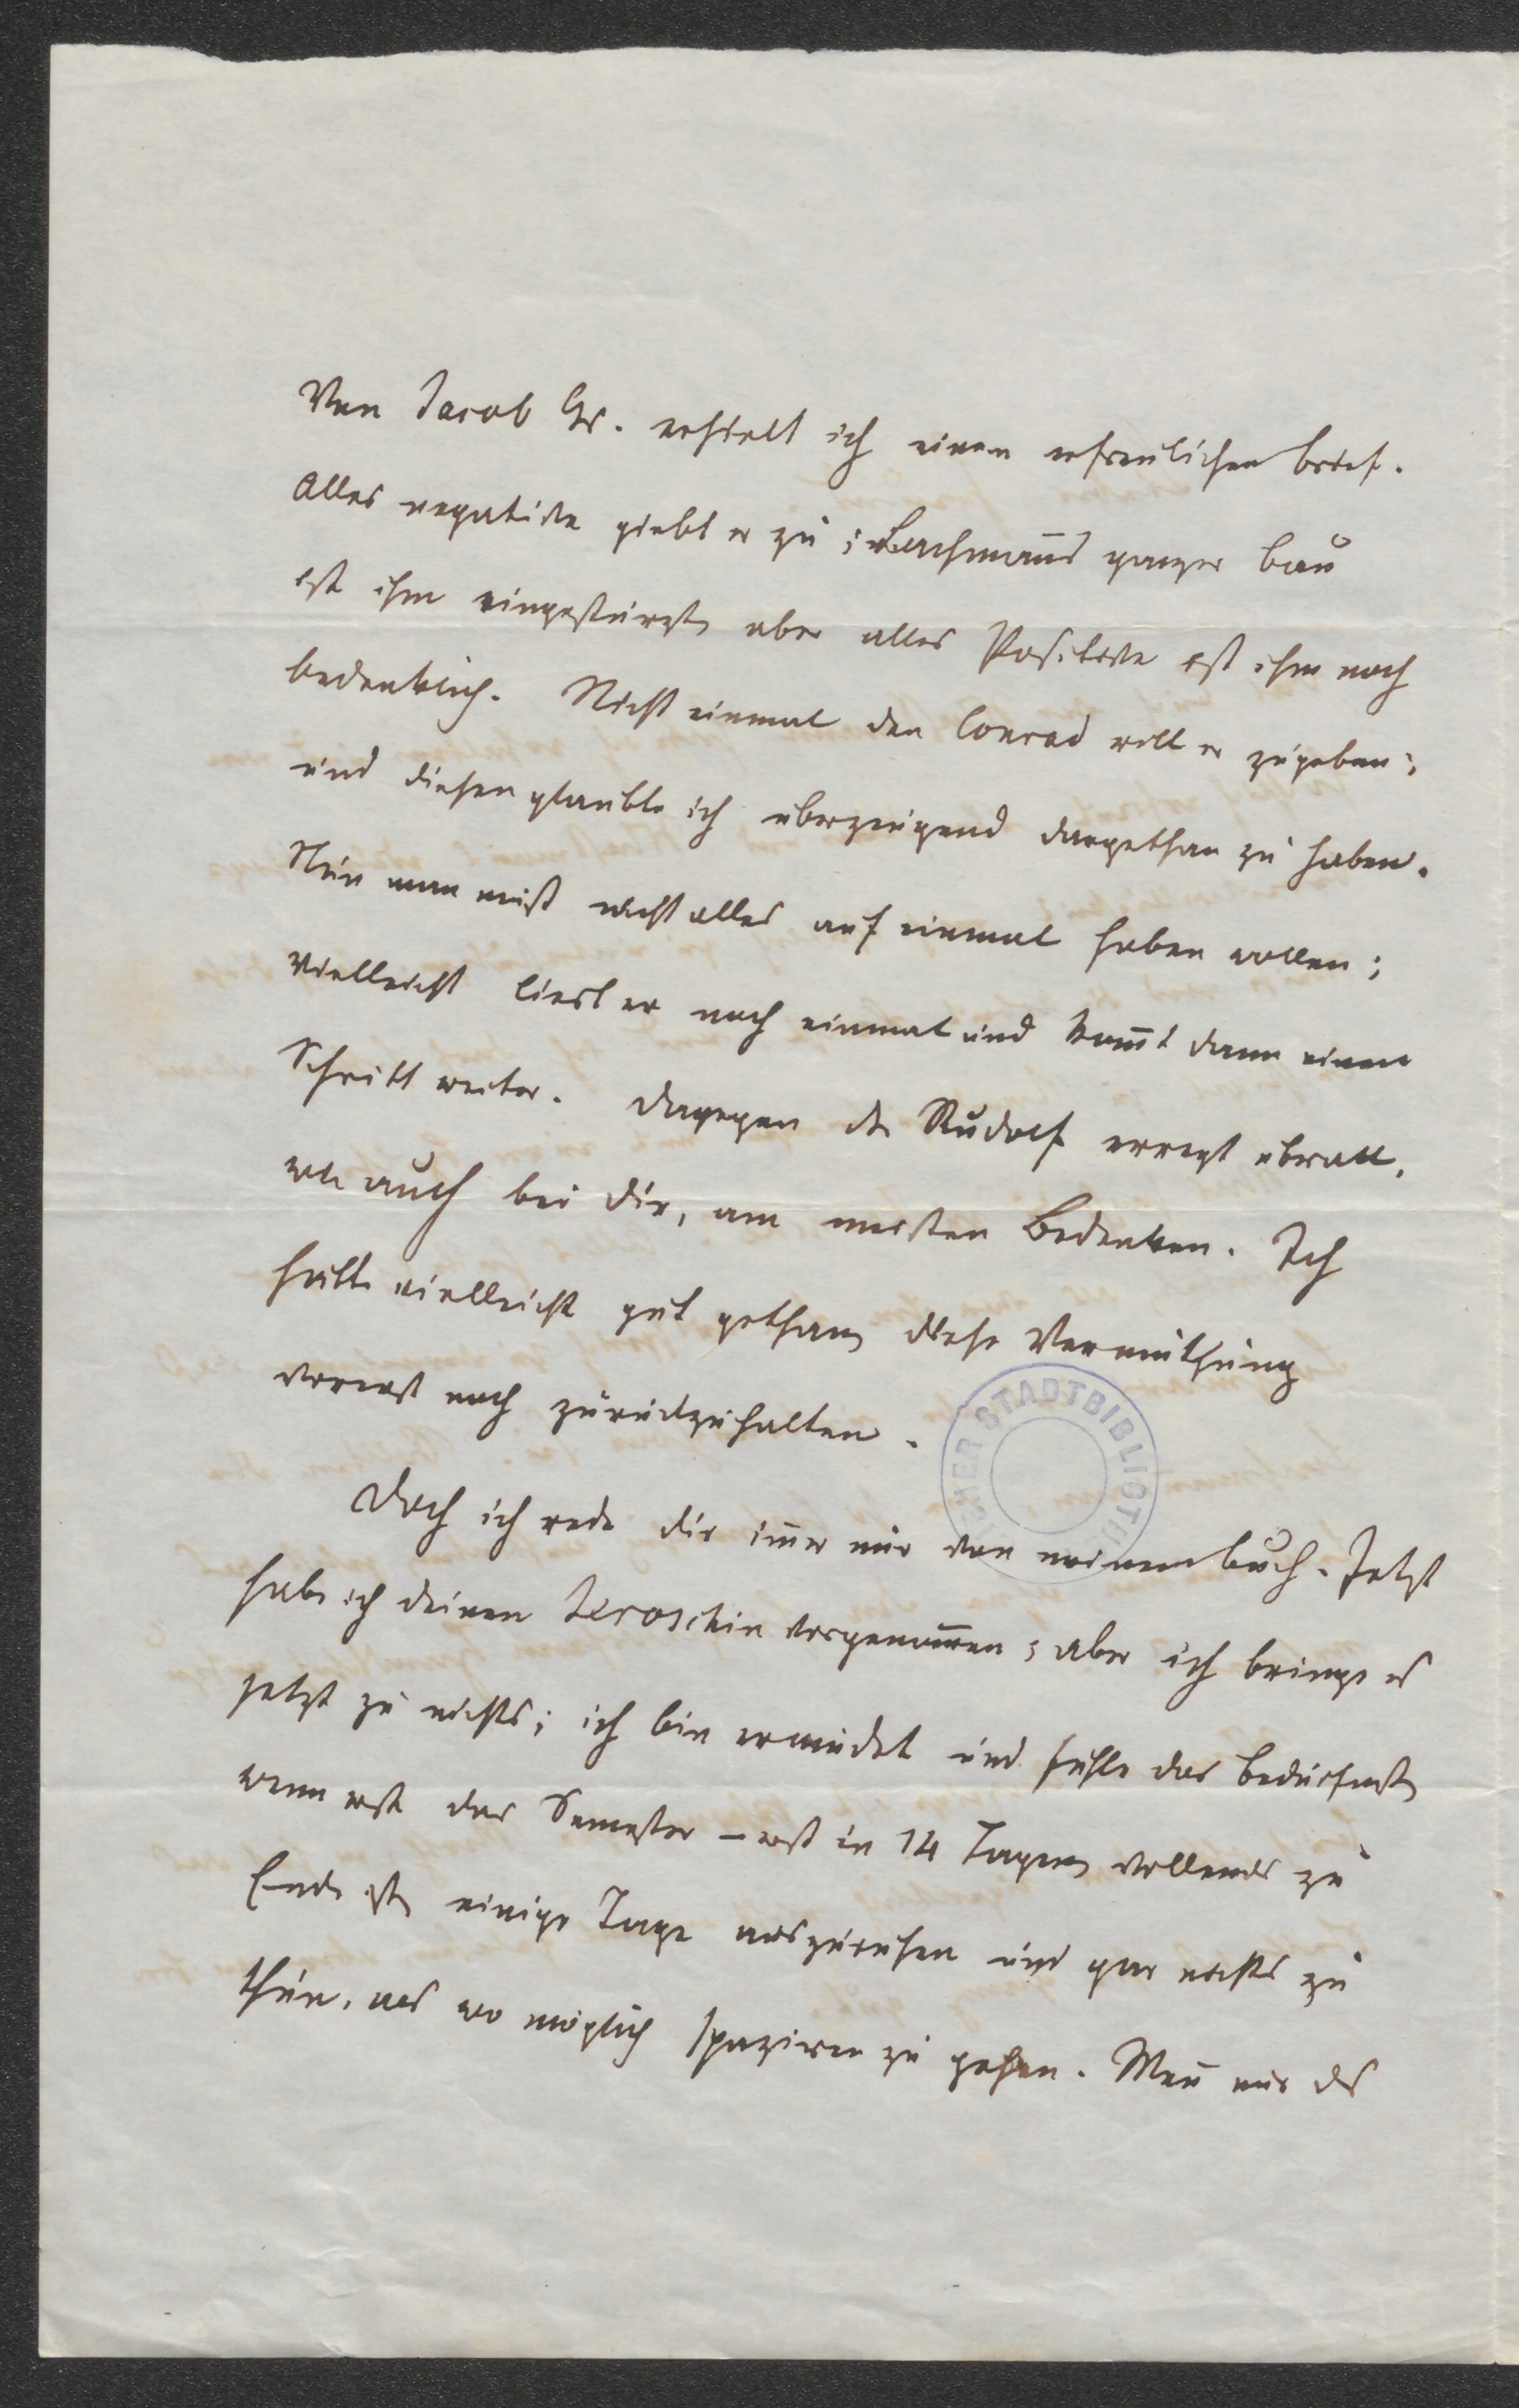 Von Jacob Gr. erhielt ich einen erfreulichen brief.
Alles negative giebt er zu; Lachmanns ganzer bau
ist ihm eingestürzt, aber alles Positive ist ihm noch
bedenklich. Nicht einmal den Conrad will er zugeben;
und diesen glaubte ich überzeugend dargethan zu haben.
Nun man muß nicht alles auf einmal haben wollen;
vielleicht liest er noch einmal und kom̄t dann einen
Schritt weiter. Dagegen der Rudolf erregt überall,
wie auch bei dir, am meisten Bedenken. Ich
hätte vielleicht gut gethan, diese Vermuthung
vorerst noch zurückzuhalten.
Doch ich rede dir im̄er nur von meinem buch. Jetzt
habe ich deinen Jeroschin vorgenom̄en; aber ich bringe es
jetzt zu nichts; ich bin ermüdet und fühle das bedürfniß,
wenn erst das Semester – erst in 14 Tagen, vollends zu
Ende ist, einige Tage auszuruhen und gar nichts zu
thun, als wo möglich spaziren zu gehen. Wen̄ nur das
STADTBIBLIOTH